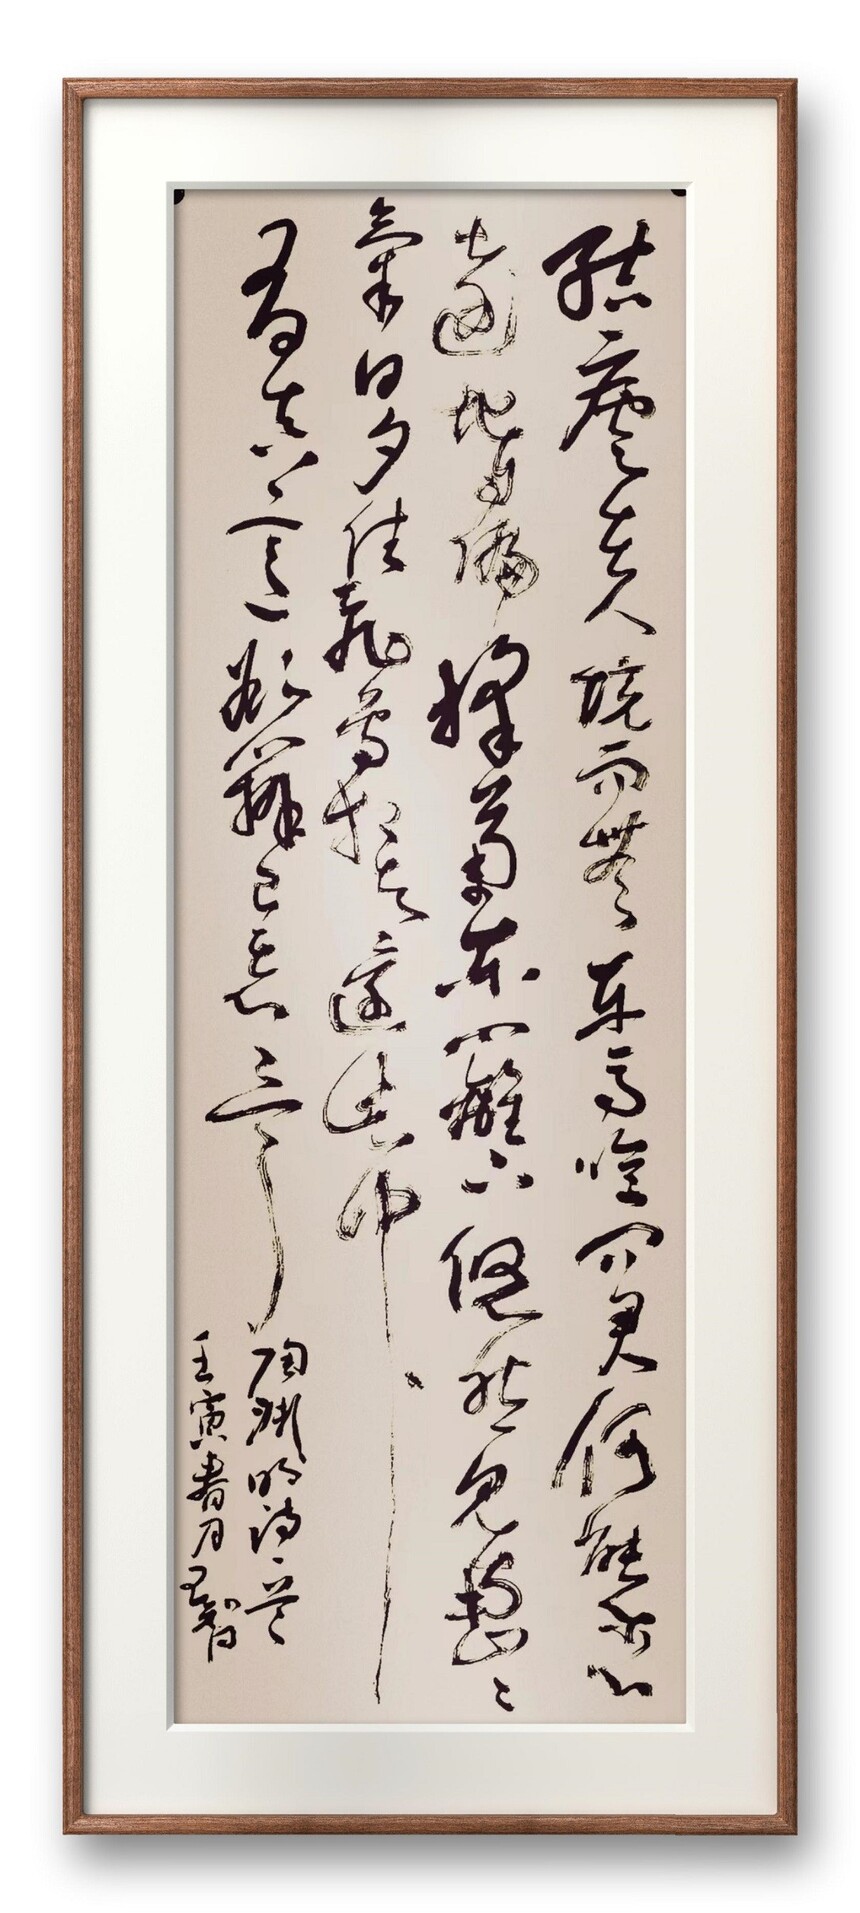 結廬在人境而無車馬喧問君何能爾心
遠地自偏採菊東籬下悠然見南山々
氣日夕佳飛鳥相與還此中
有真意欲辨已忘言
陶淵明詩一首
壬寅春月